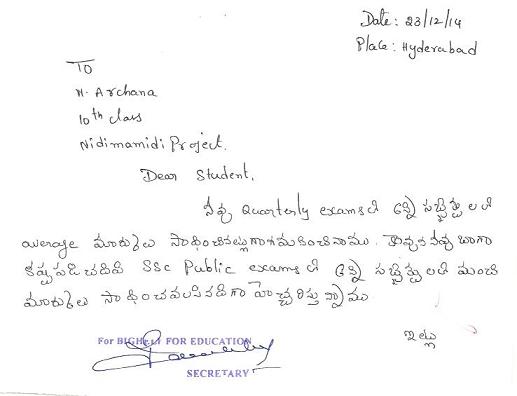 Date: 23/12/14
Place: Hyderabad
To
N. Archana
10th class
Nidimamidi Project.
Dear Student,
నీవు Quarterly examsలో అన్ని సబ్జెక్టులలో
average మార్కులు సాధించినట్లుగా గమనించినాము. కావున నీవు బాగా
కష్టపడి చదివి SSC Public examsలో అన్ని సబ్జెక్టులలో మంచి
మార్కులు సాధించవలసినదిగా హెచ్చరిస్తున్నాము
ఇట్లు
For BIGHELP FOR EDUCATION
SECRETARY